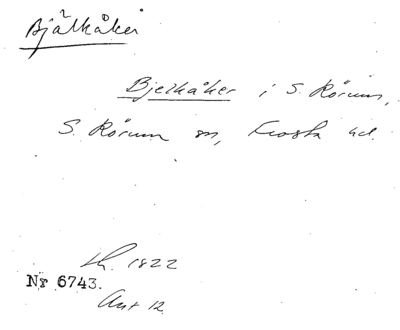 Bjälkåker
Bjelkåker i S. Rörum,
S. Rörum sn, Frosta hd.
1822
Nr 6743.
Ant 12